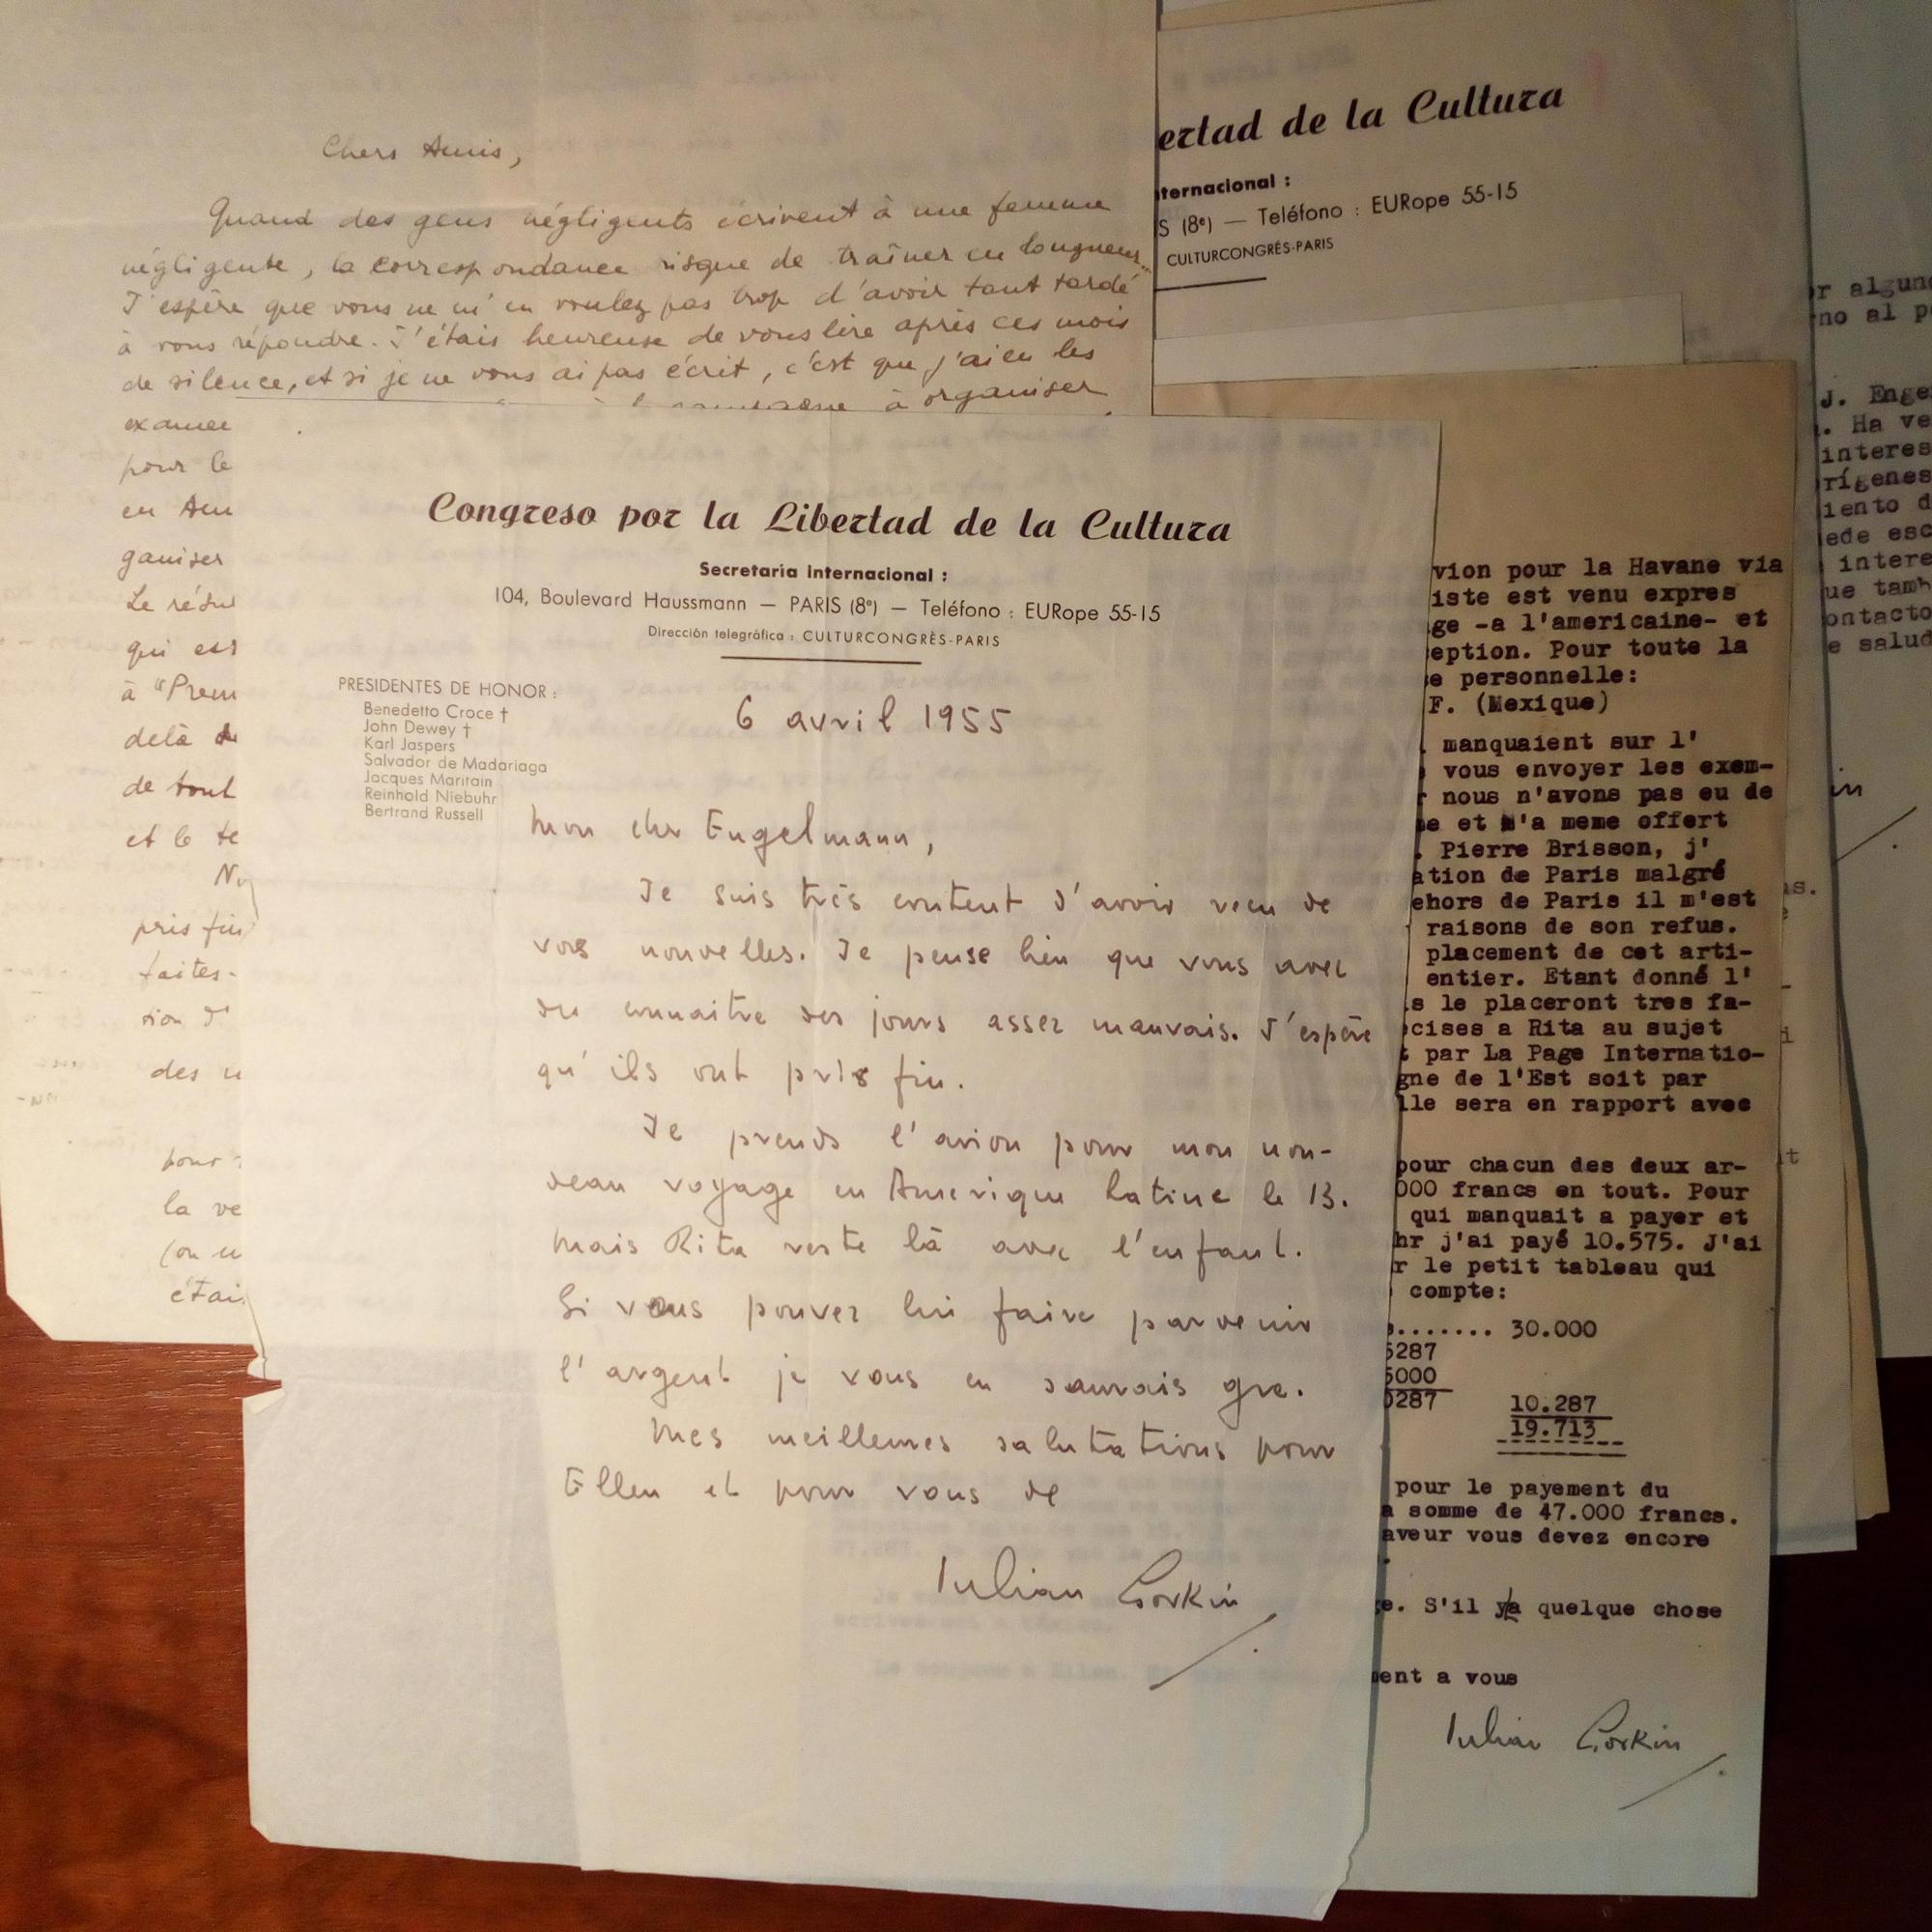 Chers Amis,
Quand des gens négligents écrivent à une femme
négligente, la correspondance risque de traîner en longueur...
J'espère que vous ne m'en voulez pas trop d'avoir tant tardé
à vous répondre. J'étais heureuse de vous lire après ces mois
de silence, et si je ne vous ai pas écrit, c'est que j'ai eu les
à organiser
examen
pour le
en Am
ganiser
Le résu
qui est
à "Preu
delà
de tout
et le te
No
pris fin
faites-
sion d'
des
pour
la ve
(on
étai
Congreso por la Libertad de la Cultura
Secretaría Internacional :
104, Boulevard Haussmann — PARIS (8e) — Teléfono : EURope 55-15
Dirección telegráfica : CULTURCONGRÈS-PARIS
PRESIDENTES DE HONOR :
Benedetto Croce †
John Dewey †
Karl Jaspers
Salvador de Madariaga
Jacques Maritain
Reinhold Niebuhr
Bertrand Russell
6 avril 1955
Mon cher Engelmann,
Je suis très content d'avoir reçu de
vos nouvelles. Je pense bien que vous avez
du connaitre des jours assez mauvais. J'espère
qu'ils ont pris fin.
Je prends l'avion pour mon nou-
veau voyage en Amerique Latine le 13.
Mais Rita reste là avec l'enfant.
Si vous pouvez lui faire parvenir
l'argent je vous en saurais gre.
Mes meilleures salutations pour
Ellen et pour vous de
Julian Gorkin
ertad de la Cultura
nternacional :
S (8e) — Teléfono : EURope 55-15
CULTURCONGRÈS-PARIS
vion pour la Havane via
iste est venu expres
ge -a l'americaine- et
eption. Pour toute la
e personnelle:
F. (Mexique)
manquaient sur l'
vous envoyer les exem-
nous n'avons pas eu de
e et m'a meme offert
. Pierre Brisson, j'
ation de Paris malgré
ehors de Paris il m'est
raisons de son refus.
placement de cet arti-
entier. Etant donné l'
s le placeront tres fa-
cises a Rita au sujet
t par La Page Internatio-
gne de l'Est soit par
lle sera en rapport avec
pour chacun des deux ar-
000 francs en tout. Pour
qui manquait a payer et
hr j'ai payé 10.575. J'ai
r le petit tableau qui
compte:
....... 30.000
5287
5000
0287 10.287
19.713
pour le payement du
a somme de 47.000 francs.
aveur vous devez encore
e. S'il ya quelque chose
ment a vous
Julian Gorkin
r alguno
no al p
J. Enge
. Ha ve
interes
rígenes
iento d
ede esc
intere
ue tamb
ontacto
e salud
in
as.